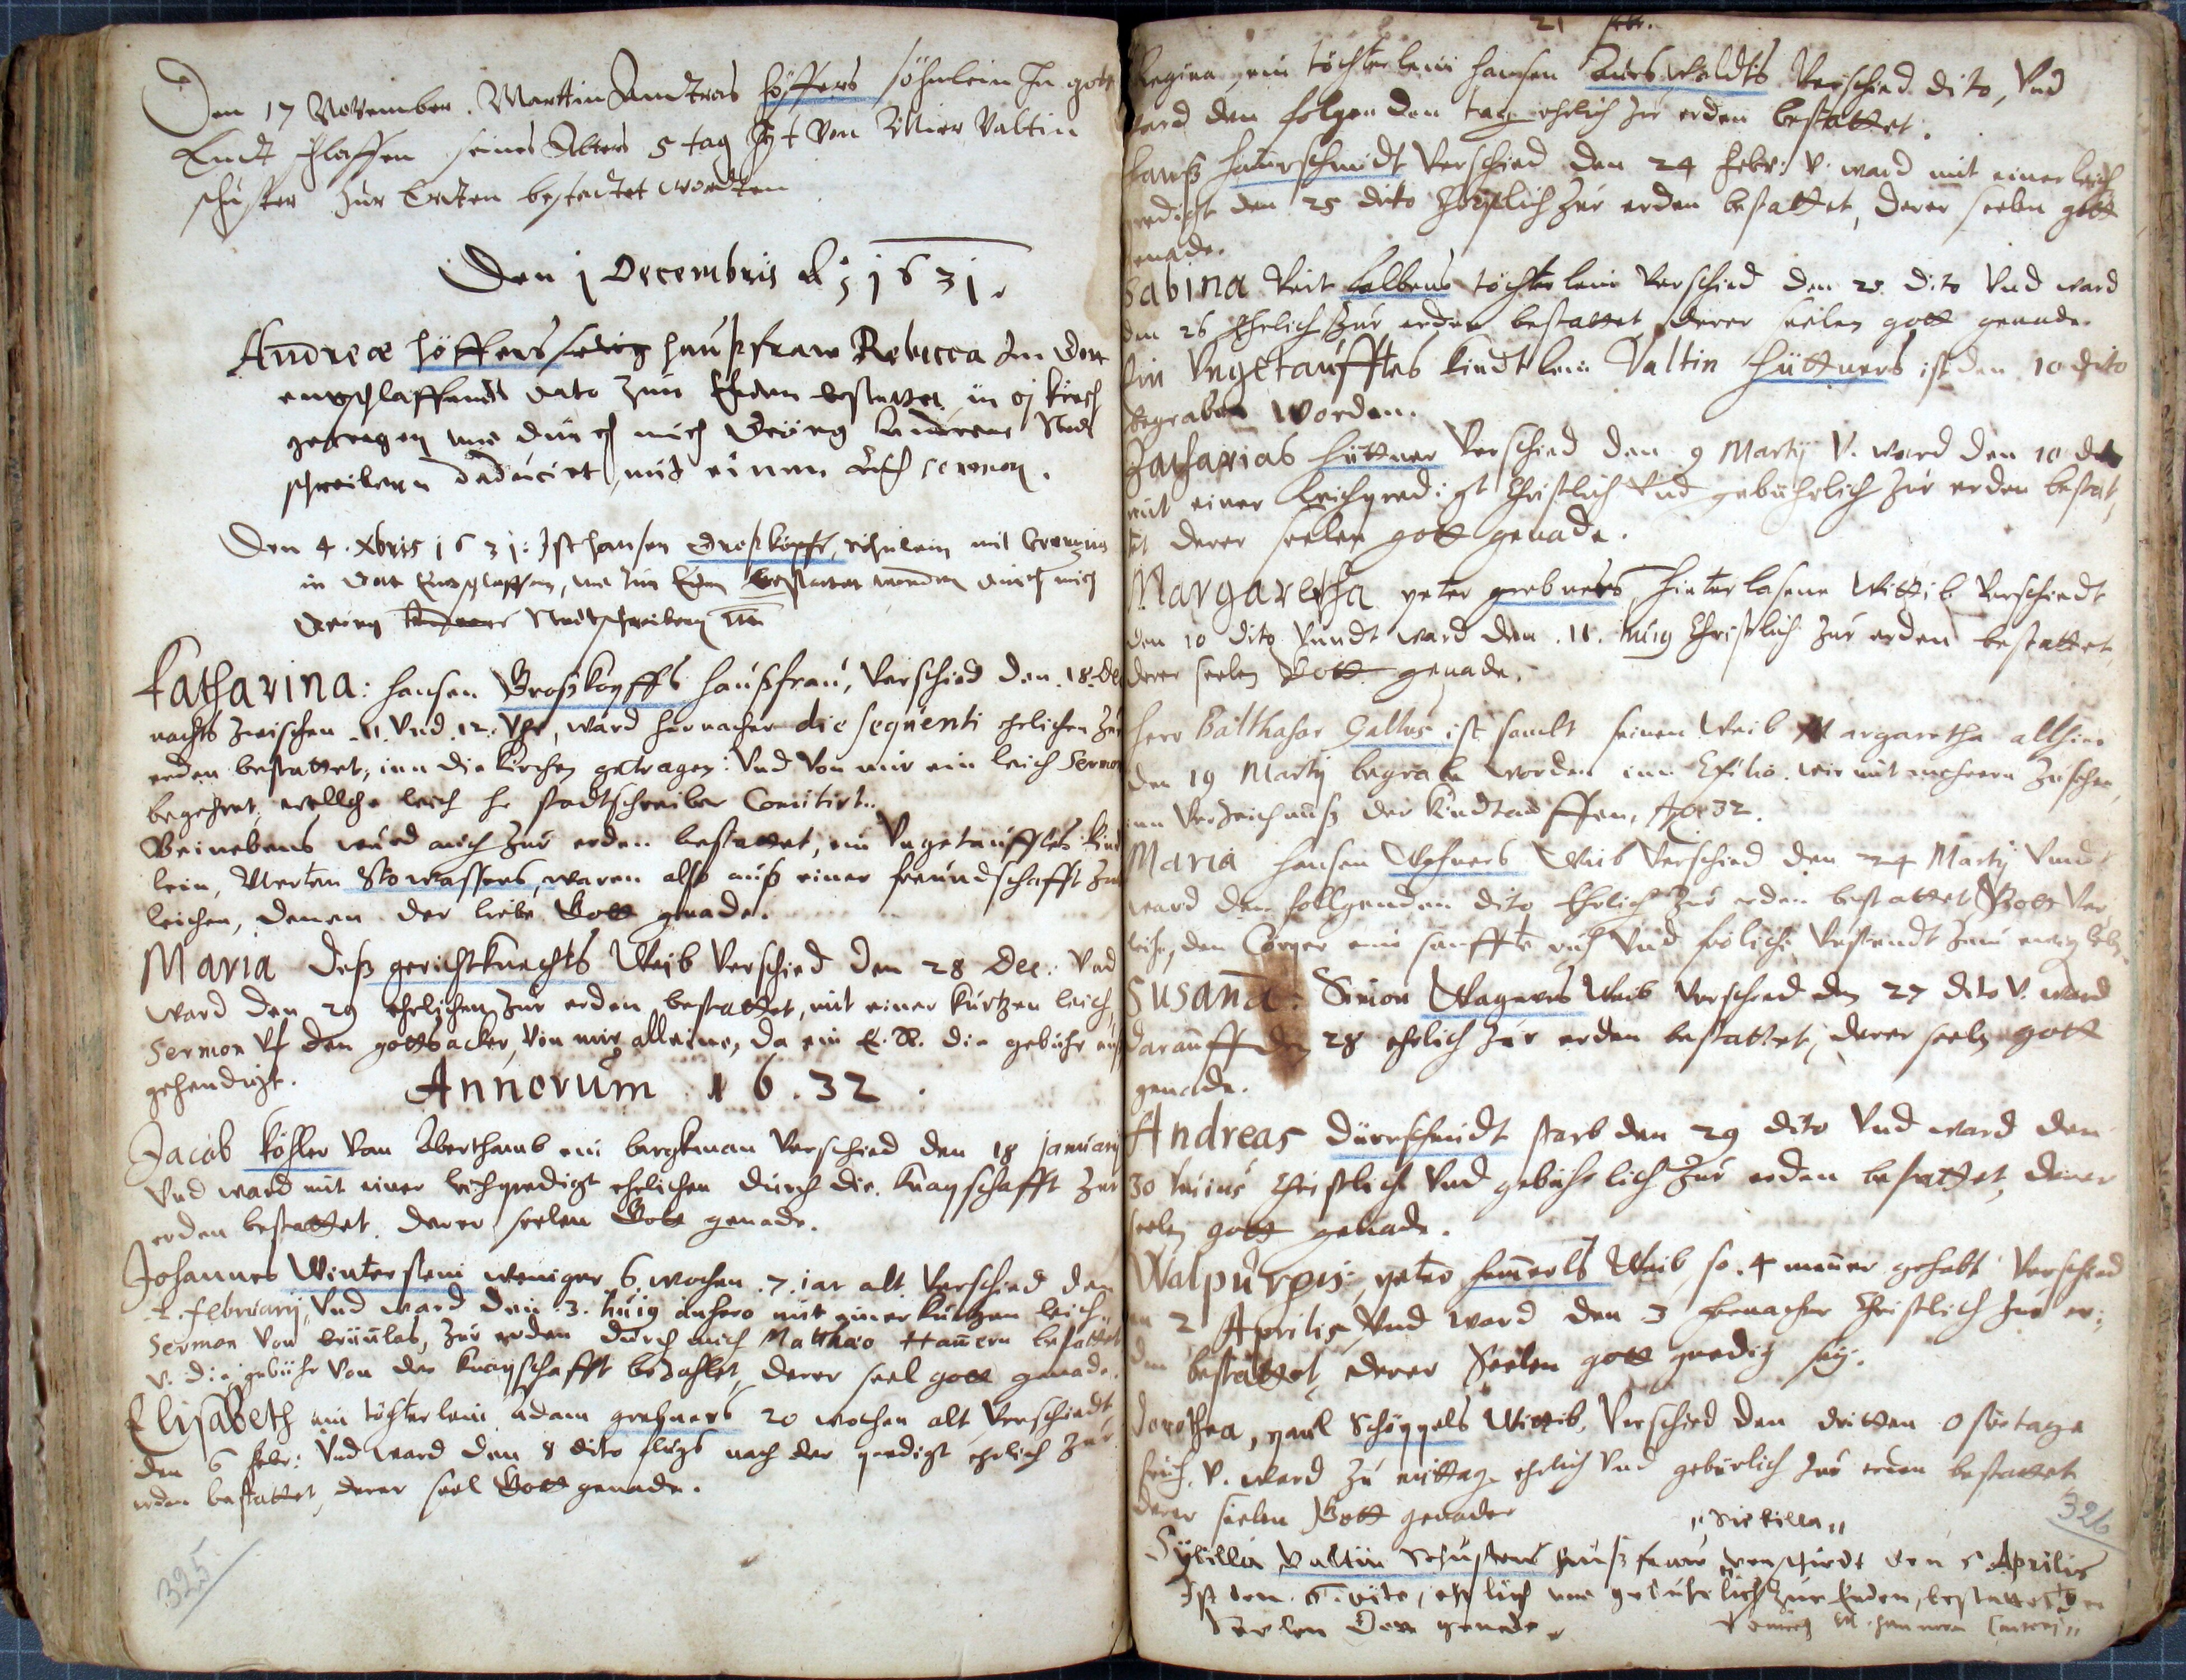 Den 17 November. Marttin Andreas höffers söhnlein In gott
Endt schlaffen seines Alters 5 tag Ist von Valtin
schuster zur Erdten bestadtet wordten
Den 1 Decembris 1631.
Andreæ höffers hausfraw Rebecca Im Gott
entschlaffendt dato zum Erden bestattet, in die kirch
getragen und durch mich Georg Stadt
schreibern deducirt, mit einem Leich sermon.
Den 4. Xbris 1631: Ist hansen Großkopffs söhnlein mit
in Gott Entschlaffen, und zur Erden bestattet worden durch mich
Georg Stadtschreibern
Katharina: hansen Großkopffs haußfrau, Verschied den 18. De
nachts zwischen 11. Und 12. Uhr, ward hernacher die sequenti ehrlichen Zur
erden bestattet, inn die kirchen getragen: Und Von mir ein leich Sermon
begehret, welche leich h. stadtschreiber Comitirt.
Beinebens ward auch Zur erden bestattet, ein Ungetaufftes kind
lein, Merten Stowassers, waren also auß einer freundschafft Zwo
leichen, denen der liebe Gott gnade.
Maria deß gerichtknechts Weib Verschied den 28 Dec. Und
ward den 29 ehrlichen Zur erden bestattet, mit einer kurtzen leich
Sermon Uf den gottsacker, Von mir alleine, da ein E. R. die gebühr auß
gehendigt.
Annorum 1632.
Jacob köhler Vom Aberthamb ein bergkman Verschied den 18 januarij
Und ward mit einer leichpredigt ehrlichen durch die knapschafft Zur
erden bestattet. derer seelen Gott genade.
Johannes Winterstein weniger 6 wochen 7 iar alt Verschied den
1. februarij, Und ward den 3. huiq anhero mit einer kurtzen leich
Sermon Von brünlas, Zur erden durch mich Matthæo Hamern bestattet
V. die gebühr Von der knapschafft bezahlet, derer seel gott genade.
Elisabeth ein töchterlein adam grebners 20 wochen alt Verschiedt
den 6 febr: Und ward den 8 dito flugs nach der predigt ehrlich Zur
erden bestattet, derer seel Gott genade.
325
21 febr.
Regina, ein töchterlein hansen Verschied dito, Und
ward den folgenden tag ehrlich Zur erden bestattet.
hanß hamerschmidt Verschied den 24 febr: V. ward mit einer leich
predigt den 25 dito Christlich Zur erden bestattet, derer seelen gott
genade.
Sabina Veit kolbens töchterlein Verschied den 25 dito Und ward
den 26 Ehrlich Zur erden bestattet derer seelen gott genade.
Ein Ungetaufftes kindtlein Valtin hüttners ist den 10 dito
begraben worden.
Zacharias hüttner Verschied den 9 Martij V. ward den 10 dito
mit einer leichpredigt Christlich Und gebührlich Zur erden bestat,
tet derer seelen gott genade.
Margaretha peter grebners hinterlasene Wittib Verschiedt
den 10 dito Vundt ward den 11. huiq Christlich Zur erden bestattet
derer seelen Gott genade.
Herr Balthasar Gallus ist sambt seinen Weib Margaretha allhier
den 19 Martij begraben worden inn Exilio. wie mit mehrern Zusehen
im Verzeichnuß der kindtauffen, Ao: 32.
Maria hansen Weib Verschied den 24 Martij Vundt
ward den follgenden dito Ehrlich Zur erden bestattet Gott Ver
leihe, den Cörper ein sanffte ruh Und fröliche Vrstendt Zum ewig leben.
Susana: Simon Wagners Weib Verschied den 27 dito V. ward
darauff den 28 ehrlich Zur erden bestattet, derer seelen gott
genade.
Andreas dürrschmidt starb den 29 dito Und ward den
30 huius Christlich Und gebührlich Zur erden bestattet, derer
seelen gott genade.
Walpurgis, peter hamerls Weib, so 4 männer gehabt Verschied
den 2 Aprilis Und ward den 3 hernacher Christlich Zur er,
den bestattet, derer Seelen gott gnedig sey.
Dorothea, paul Schöppels Wittib, Verschied den dritten Ostertage
früh, V. ward Zu mittag ehrlich Und gebürlich Zur erden bestattet
derer seelen Gott genade
Sibilla
Sybilla Valtin Schusters haußfraw verschiedt den 5 Aprilis
Ist dem 6. dito, ehrlich und gebührlich Zur Erden, bestattet der
Seelen Gott genade.
326